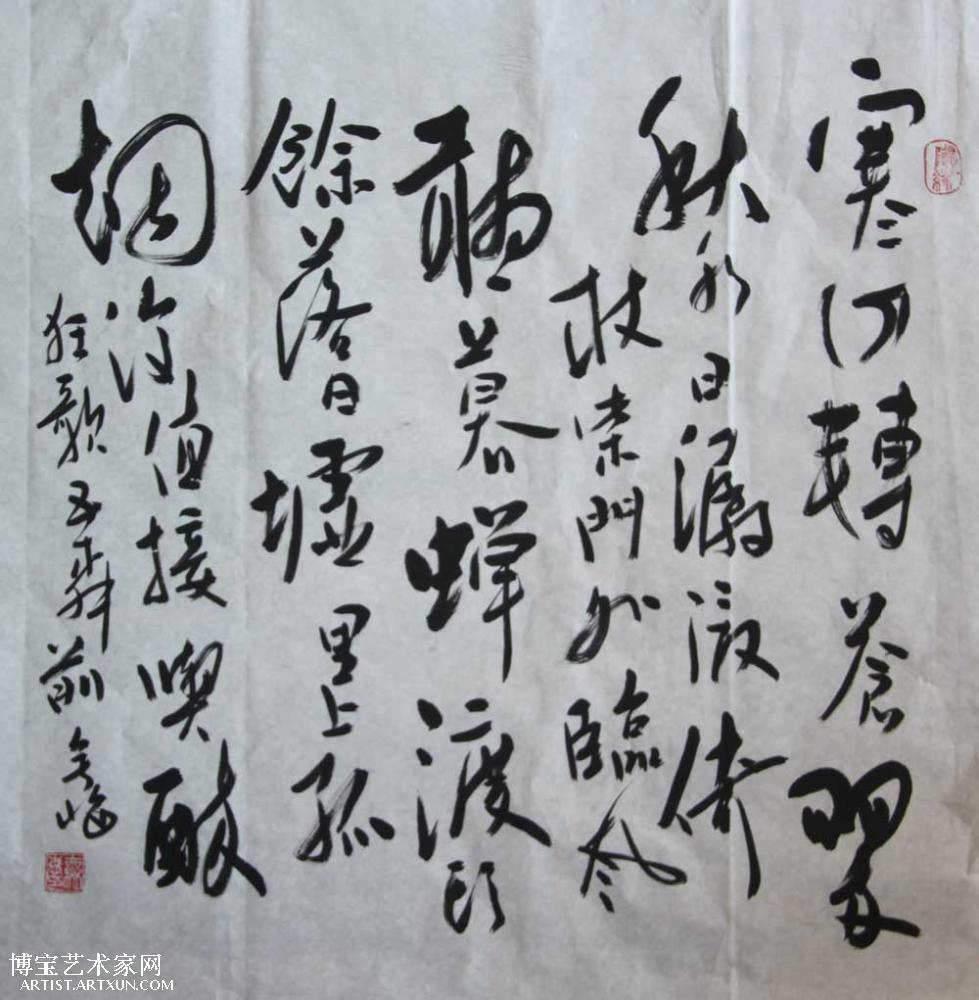 寒山轉蒼翠
秋水日潺湲倚
杖柴門外臨風
聽暮蝉渡頭
餘落日墟里上孤
烟復值接輿醉
狂歌五柳前
博宝艺术家网
ARTIST.ARTXUN.COM